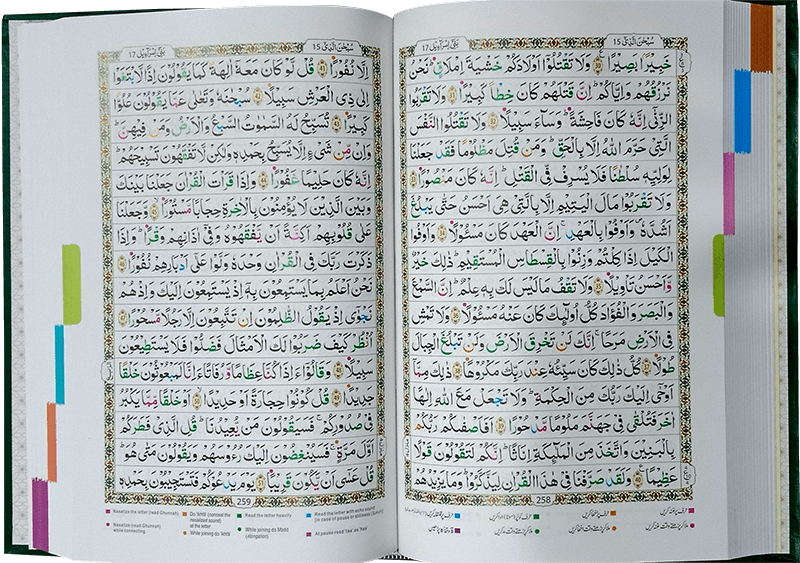 سُبْحٰنَ الَّذِیْۤ 15
بَنِیْۤ اِسْرَآءِیْل 17
خَبِیْرًۢا بَصِیْرًا ﴿30﴾ وَلَا تَقْتُلُوْۤا اَوْلَادَكُمْ خَشْیَةَ اِمْلَاقٍ ؕ نَحْنُ
نَرْزُقُهُمْ وَاِیَّاكُمْ ؕ اِنَّ قَتْلَهُمْ كَانَ خِطْاً كَبِیْرًا ﴿31﴾ وَلَا تَقْرَبُوا
الزِّنٰۤی اِنَّهٗ كَانَ فَاحِشَةً ؕ وَسَآءَ سَبِیْلًا ﴿32﴾ وَلَا تَقْتُلُوا النَّفْسَ
الَّتِیْ حَرَّمَ اللّٰهُ اِلَّا بِالْحَقِّ ؕ وَمَنْ قُتِلَ مَظْلُوْمًا فَقَدْ جَعَلْنَا
لِوَلِیِّهٖ سُلْطٰنًا فَلَا یُسْرِفْ فِّی الْقَتْلِ ؕ اِنَّهٗ كَانَ مَنْصُوْرًا ﴿33﴾
وَلَا تَقْرَبُوْا مَالَ الْیَتِیْمِ اِلَّا بِالَّتِیْ هِیَ اَحْسَنُ حَتّٰی یَبْلُغَ
اَشُدَّهٗ ۪ وَاَوْفُوْا بِالْعَهْدِ ۚ اِنَّ الْعَهْدَ كَانَ مَسْـُٔوْلًا ﴿34﴾ وَاَوْفُوا
الْكَیْلَ اِذَا كِلْتُمْ وَزِنُوْا بِالْقِسْطَاسِ الْمُسْتَقِیْمِ ؕ ذٰلِكَ خَیْرٌ
وَّاَحْسَنُ تَاْوِیْلًا ﴿35﴾ وَلَا تَقْفُ مَا لَیْسَ لَكَ بِهٖ عِلْمٌ ؕ اِنَّ السَّمْعَ
وَالْبَصَرَ وَالْفُؤَادَ كُلُّ اُولٰٓىِٕكَ كَانَ عَنْهُ مَسْـُٔوْلًا ﴿36﴾ وَلَا تَمْشِ
فِی الْاَرْضِ مَرَحًا ۚ اِنَّكَ لَنْ تَخْرِقَ الْاَرْضَ وَلَنْ تَبْلُغَ الْجِبَالَ
طُوْلًا ﴿37﴾ كُلُّ ذٰلِكَ كَانَ سَیِّئُهٗ عِنْدَ رَبِّكَ مَكْرُوْهًا ﴿38﴾ ذٰلِكَ مِمَّاۤ
اَوْحٰۤی اِلَیْكَ رَبُّكَ مِنَ الْحِكْمَةِ ؕ وَلَا تَجْعَلْ مَعَ اللّٰهِ اِلٰهًا
اٰخَرَ فَتُلْقٰی فِیْ جَهَنَّمَ مَلُوْمًا مَّدْحُوْرًا ﴿39﴾ اَفَاَصْفٰىكُمْ رَبُّكُمْ
بِالْبَنِیْنَ وَاتَّخَذَ مِنَ الْمَلٰٓىِٕكَةِ اِنَاثًا ؕ اِنَّكُمْ لَتَقُوْلُوْنَ قَوْلًا
عَظِیْمًا ﴿40﴾ وَلَقَدْ صَرَّفْنَا فِیْ هٰذَا الْقُرْاٰنِ لِیَذَّكَّرُوْا ؕ وَمَا یَزِیْدُهُمْ
258
سُبْحٰنَ الَّذِیْۤ 15
بَنِیْۤ اِسْرَآءِیْل 17
اِلَّا نُفُوْرًا ﴿41﴾ قُلْ لَّوْ كَانَ مَعَهٗۤ اٰلِهَةٌ كَمَا یَقُوْلُوْنَ اِذًا لَّابْتَغَوْا
اِلٰی ذِی الْعَرْشِ سَبِیْلًا ﴿42﴾ سُبْحٰنَهٗ وَتَعٰلٰی عَمَّا یَقُوْلُوْنَ عُلُوًّا
كَبِیْرًا ﴿43﴾ تُسَبِّحُ لَهُ السَّمٰوٰتُ السَّبْعُ وَالْاَرْضُ وَمَنْ فِیْهِنَّ ؕ
وَاِنْ مِّنْ شَیْءٍ اِلَّا یُسَبِّحُ بِحَمْدِهٖ وَلٰكِنْ لَّا تَفْقَهُوْنَ تَسْبِیْحَهُمْ ؕ
اِنَّهٗ كَانَ حَلِیْمًا غَفُوْرًا ﴿44﴾ وَاِذَا قَرَاْتَ الْقُرْاٰنَ جَعَلْنَا بَیْنَكَ
وَبَیْنَ الَّذِیْنَ لَا یُؤْمِنُوْنَ بِالْاٰخِرَةِ حِجَابًا مَّسْتُوْرًا ﴿45﴾ وَّجَعَلْنَا
عَلٰی قُلُوْبِهِمْ اَكِنَّةً اَنْ یَّفْقَهُوْهُ وَفِیْۤ اٰذَانِهِمْ وَقْرًا ؕ وَاِذَا
ذَكَرْتَ رَبَّكَ فِی الْقُرْاٰنِ وَحْدَهٗ وَلَّوْا عَلٰۤی اَدْبَارِهِمْ نُفُوْرًا ﴿46﴾
نَحْنُ اَعْلَمُ بِمَا یَسْتَمِعُوْنَ بِهٖۤ اِذْ یَسْتَمِعُوْنَ اِلَیْكَ وَاِذْ هُمْ
نَجْوٰۤی اِذْ یَقُوْلُ الظّٰلِمُوْنَ اِنْ تَتَّبِعُوْنَ اِلَّا رَجُلًا مَّسْحُوْرًا ﴿47﴾
اُنْظُرْ كَیْفَ ضَرَبُوْا لَكَ الْاَمْثَالَ فَضَلُّوْا فَلَا یَسْتَطِیْعُوْنَ
سَبِیْلًا ﴿48﴾ وَقَالُوْۤا ءَاِذَا كُنَّا عِظَامًا وَّرُفَاتًا ءَاِنَّا لَمَبْعُوْثُوْنَ خَلْقًا
جَدِیْدًا ﴿49﴾ قُلْ كُوْنُوْا حِجَارَةً اَوْ حَدِیْدًا ﴿50﴾ اَوْ خَلْقًا مِّمَّا یَكْبُرُ
فِیْ صُدُوْرِكُمْ ۚ فَسَیَقُوْلُوْنَ مَنْ یُّعِیْدُنَا ؕ قُلِ الَّذِیْ فَطَرَكُمْ
اَوَّلَ مَرَّةٍ ۚ فَسَیُنْغِضُوْنَ اِلَیْكَ رُءُوْسَهُمْ وَیَقُوْلُوْنَ مَتٰی هُوَ ؕ
قُلْ عَسٰۤی اَنْ یَّكُوْنَ قَرِیْبًا ﴿51﴾ یَوْمَ یَدْعُوْكُمْ فَتَسْتَجِیْبُوْنَ بِحَمْدِهٖ
259
Nasalize the letter (read Ghunnah)
Do 'Ikhfa' (conceal the nasalized sound) of the letter
Read the letter heavily
Read the letter with echo sound (in case of pause or stillness (Sukun))
Nasalize (read Ghunnah) while connecting
While joining do 'Ikhfa'
While joining do Madd (elongation)
At pause read 'taa' as 'haa'